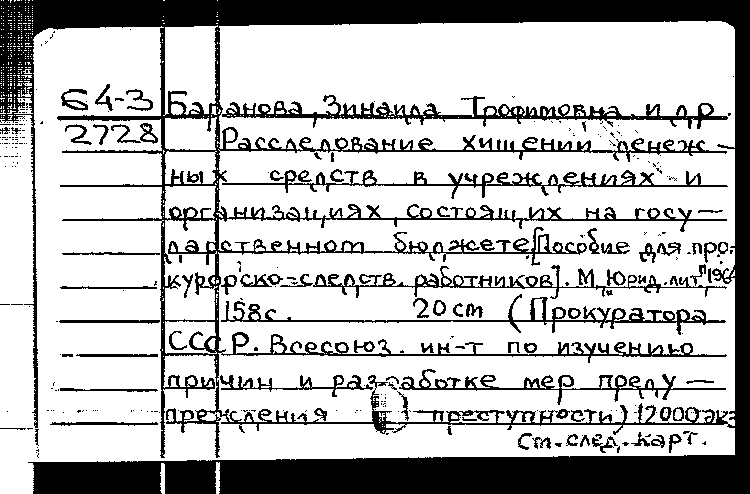 64-3 Баранова, Зинаида Трофимовна и др.
2728 Расследование хищений денеж-
ных средств в учреждениях и
организациях, состоящих на госу-
дарственном бюджете. [Пособие для про-
курорско-следств. работников]. М., "Юрид. лит.", 1964
158с. 20 см (Прокуратора
СССР. Всесоюз. ин-т по изучению
причин и разработке мер преду-
преждения преступности) 12000 экз
См. след. карт.